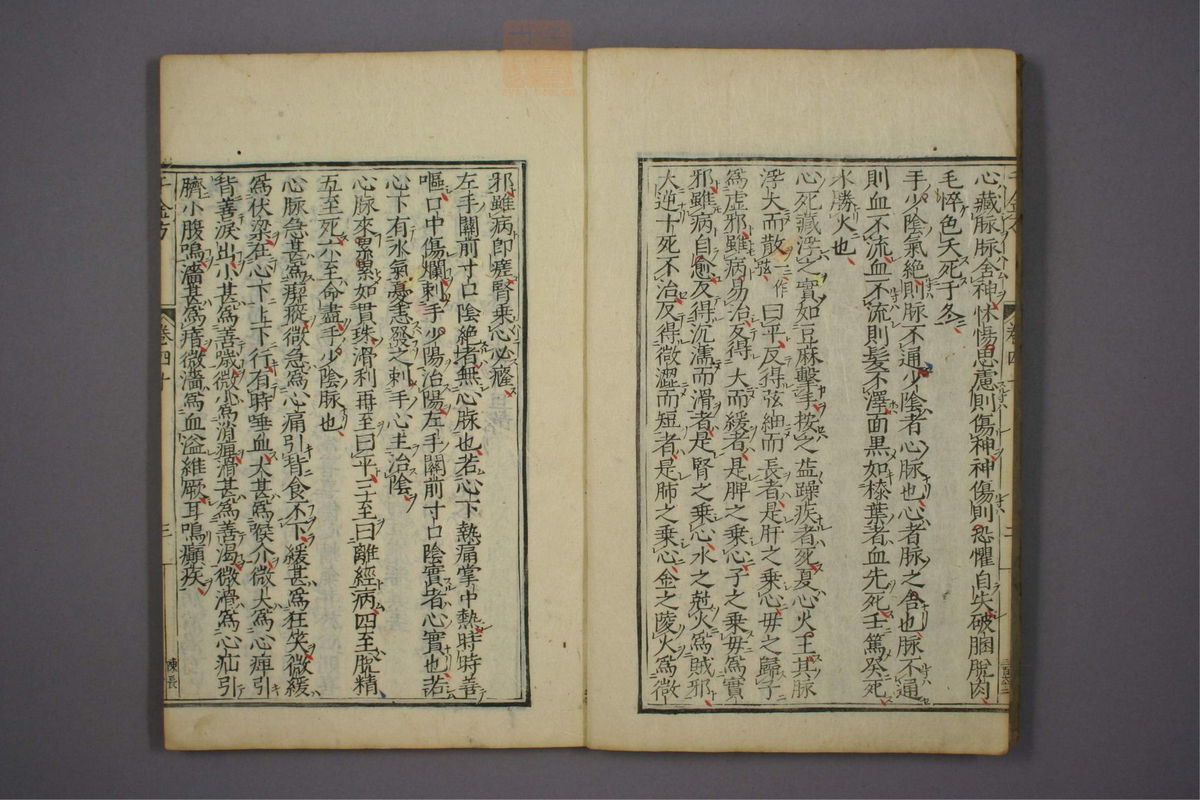 心藏脉脉舍神怵惕思慮則傷神神傷則恐懼自失破䐃脫肉
毛悴色夭死于冬
手少陰氣絶則脉不通少陰者心脉也心者脉之合也脉不通
則血不流血不流則髮不澤面黒如㯃葉者血先死壬篤癸死
水勝火也
心死藏浮之實如豆麻擊手按之益躁疾者死夏心火王其脉
浮大而散一作弦曰平反得弦細而長者是肝之乗心母之歸子
爲虚邪雖病易治反得大而緩者是脾之乗心子之乗母爲實
邪雖病自愈反得沉濡而滑者是腎之乗心水之尅火爲賊邪
大逆十死不治反得微澀而短者是肺之乗心金之陵火爲微
卷四十
邪雖病即瘥腎乗心必癃
左手關前寸口陰絶者無心脉也若心下熱痛掌中熱時時善
嘔口中傷爛刺手少陽治陽左手關前寸口陰實者心實也若
心下有水氣憂恚發之刺手心主治陰
心脉來累累如貫珠滑利再至曰平三至曰離經病四至脫精
五至死六至命盡手少陰脉也
心脉急甚爲瘛瘲微急爲心痛引背食不下緩甚爲狂笑微緩
爲伏梁在心下上下行有時唾血大甚爲喉介微大爲心痺引
背善淚出小甚爲善噦微小爲消癉滑甚爲善渴微滑爲心疝引
臍小腹鳴濇甚爲瘖微濇爲血溢維厥耳鳴癲疾
卷四十
三
陳長